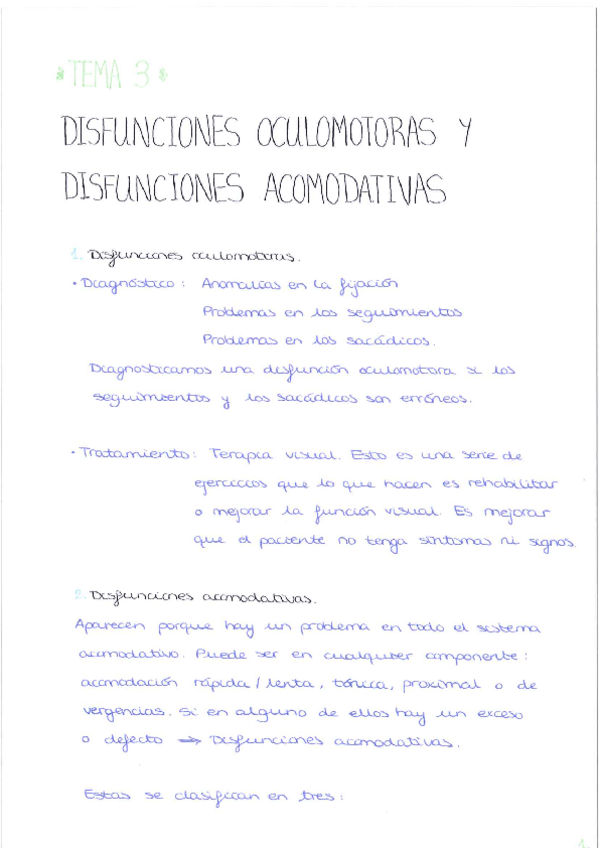 * TEMA 3 *
DISFUNCIONES OCULOMOTORAS Y
DISFUNCIONES ACOMODATIVAS
1. Disfunciones oculomotoras.
· Diagnóstico: Anomalías en la fijación
Problemas en los seguimientos
Problemas en los sacádicos.
Diagnosticamos una disfunción oculomotora si los
seguimientos y los sacádicos son erróneos.
· Tratamiento: Terapia visual. Esto es una serie de
ejercicios que lo que hacen es rehabilitar
o mejorar la función visual. Es mejorar
que el paciente no tenga síntomas ni signos.
2. Disfunciones acomodativas.
Aparecen porque hay un problema en todo el sistema
acomodativo. Puede ser en cualquier componente:
acomodación rápida/lenta, tónica, proximal o de
vergencias. Si en alguno de ellos hay un exceso
o defecto → Disfunciones acomodativas.
Estas se clasifican en tres: